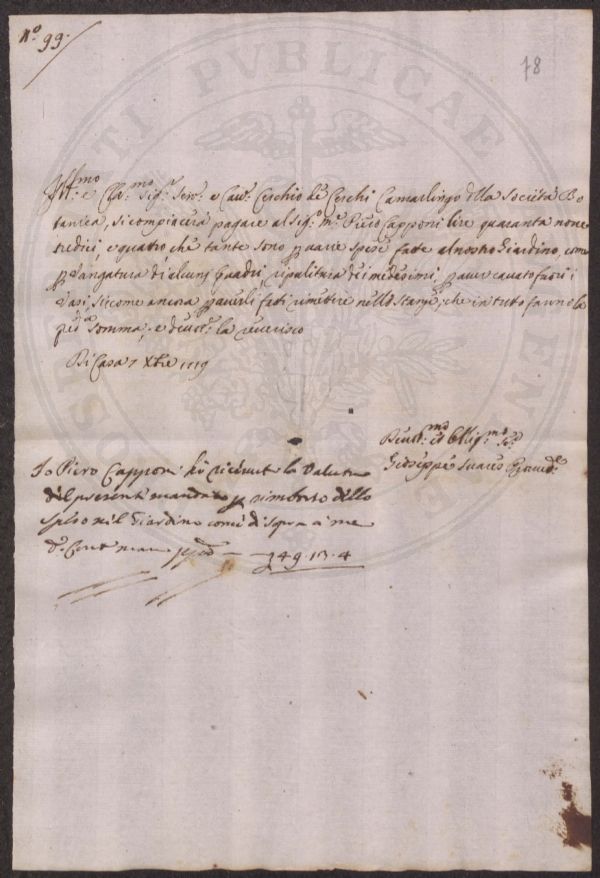 N.º 99.
78
Ill.mo e Cla.mo Sig.r Sen.re e Cav.re Cerchio de Cerchi Camarlingo della Società Bo-
tanica, si compiacerà pagare al Sig.r Piero Capponi lire quaranta nove
tredici, e quattro che tante sono p varie spese fatte al nostro Giardino, come
p Vangatura di alcuni Quadri, ripulitura dei medesimi, p aver cavato fuori i
Vasi, sicome ancora p averli fatti rimettere nello Stanzone, che in tutto fanno la
somma, e la reverisco
Di Casa 7 Xbre 1719
Giuseppe
Io Piero Capponi hò ricevuto la Valuta
del presente mandato p rimborso dello
speso nel Giardino come di sopra a me
Cont mano pp.a — £ 49.13.4
PVBLICAE